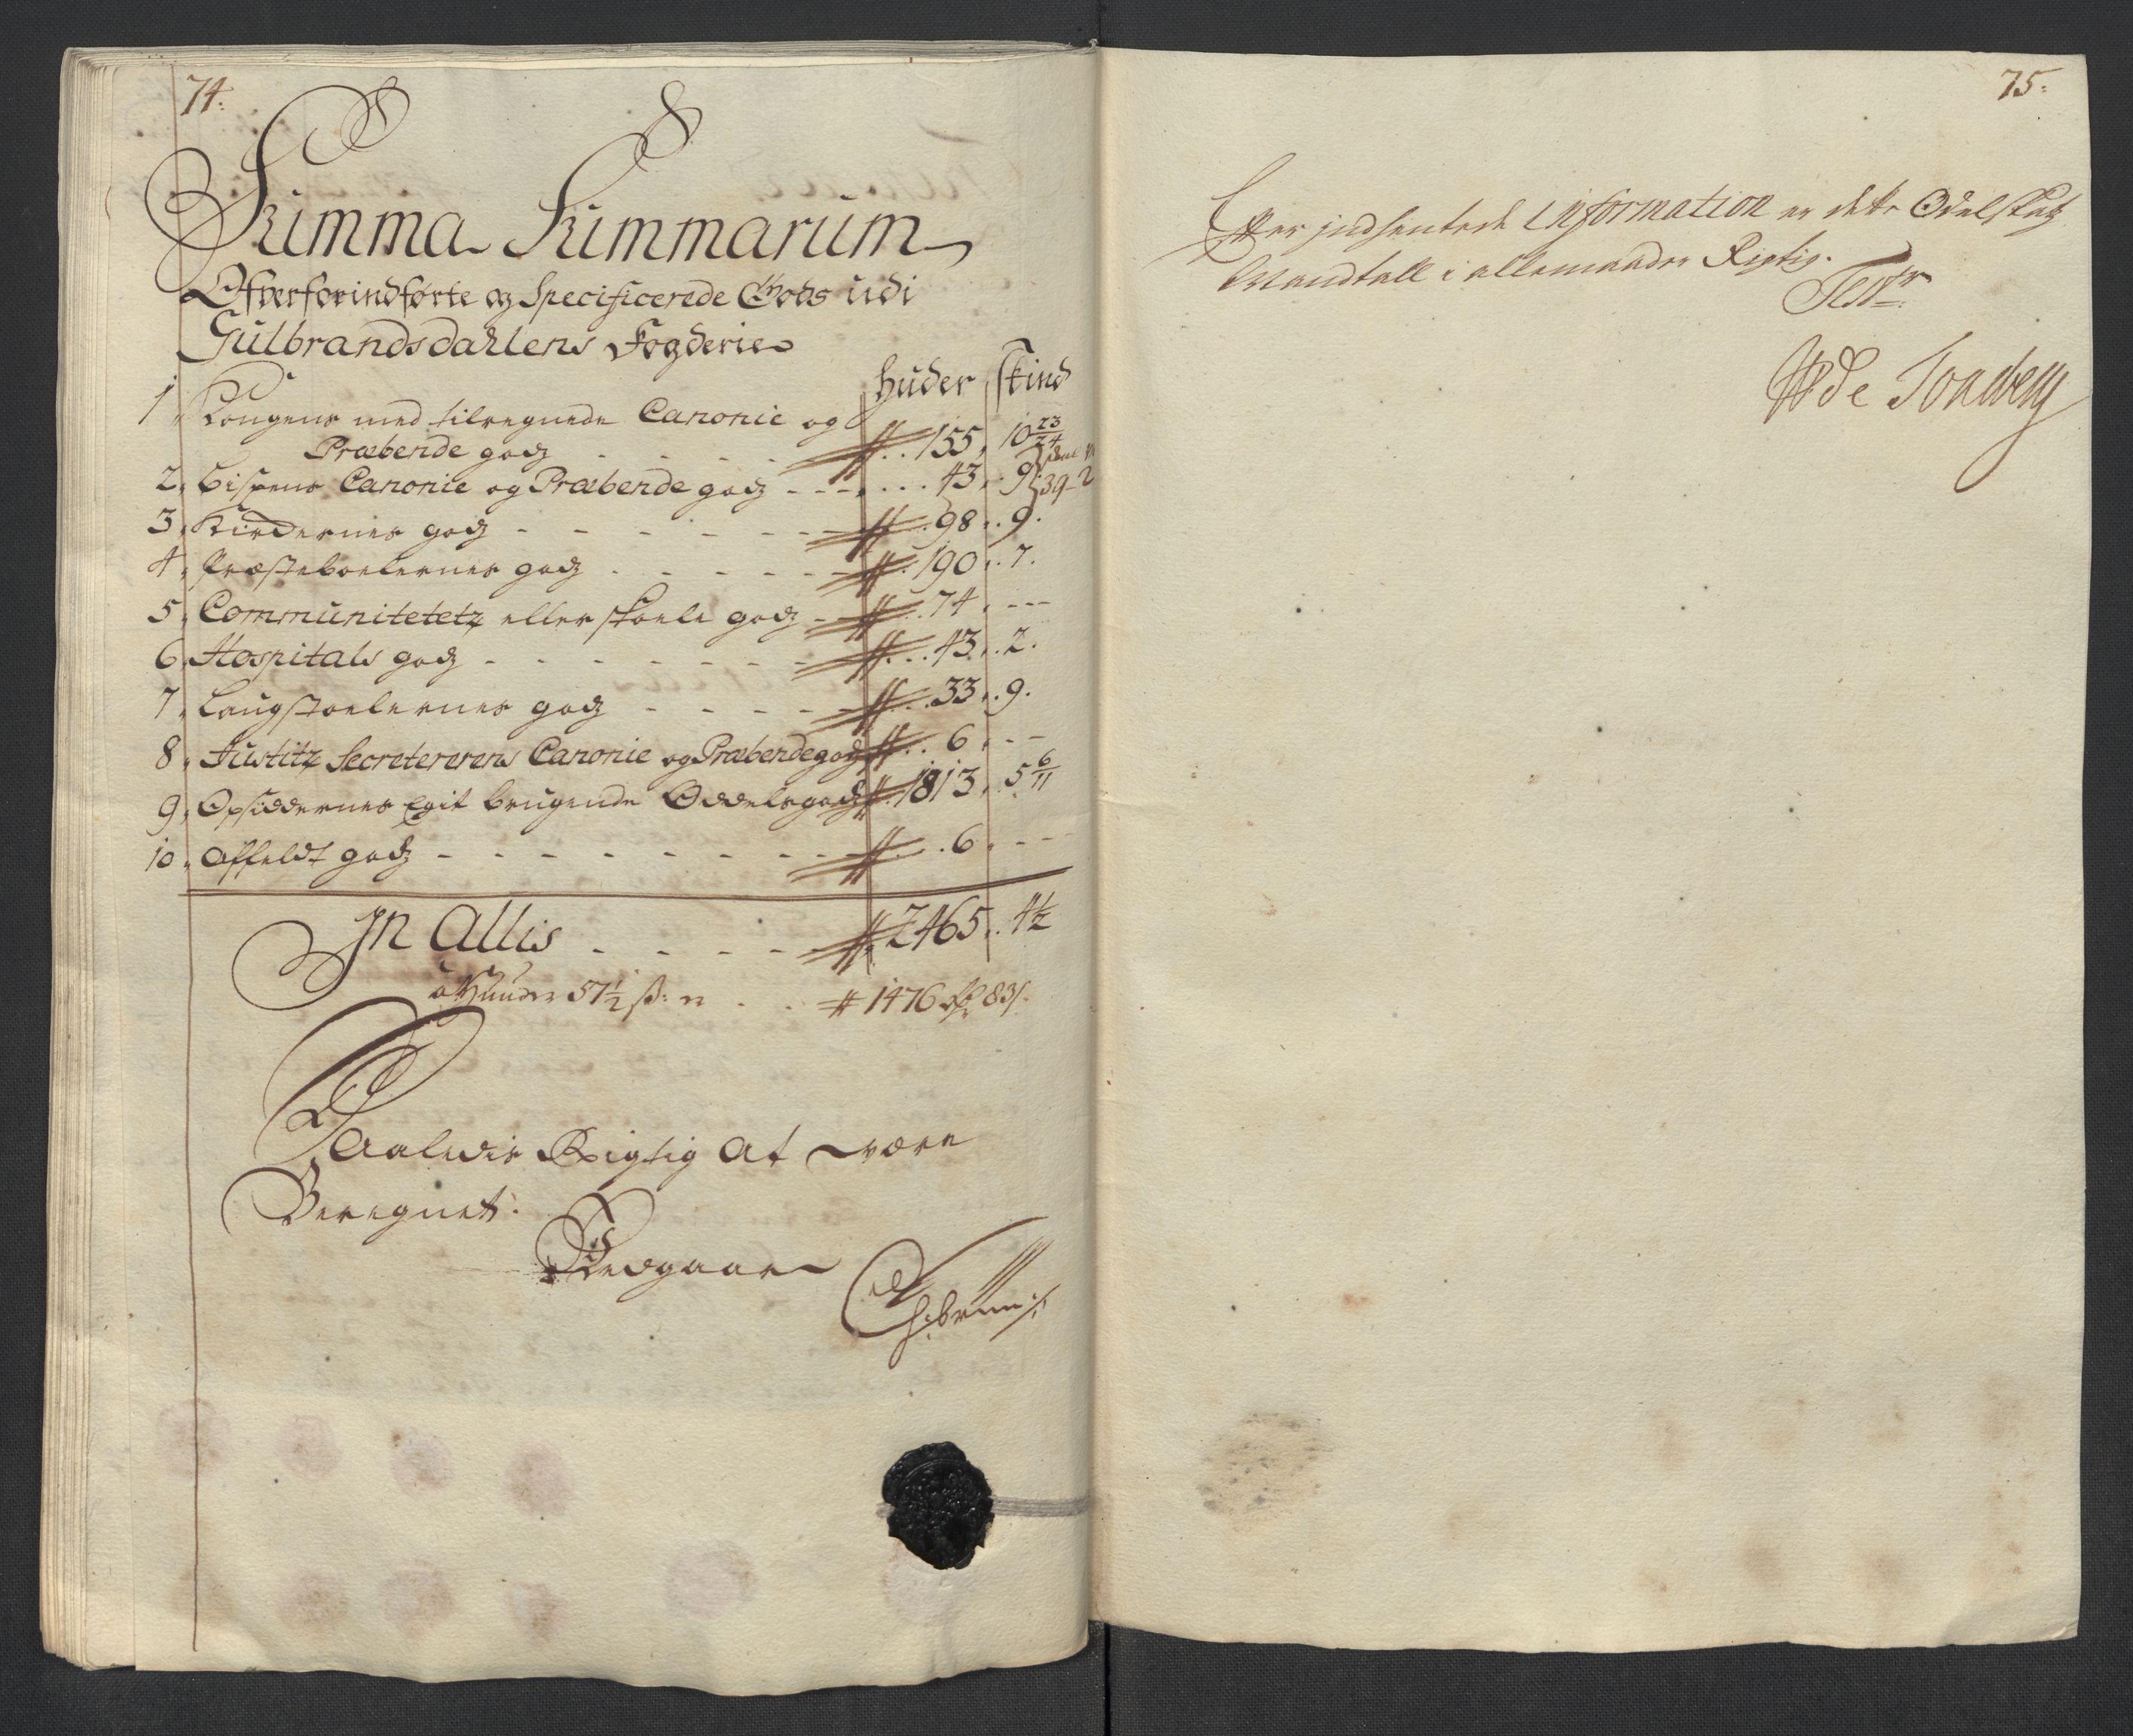 74.
Summa Summarum
Ofverforindførte og Specificerede Gods udi
Gulbrandsdahlens Fogderie
huder skind
1 Kongens med tilregnede Canonie og
Præbende godz - - - # 155, 10 23/24
2, Bispens Canonie og Præbende godz - - - 43, 9 39-2
3, Kirckernes godz - - - # 98, 9.
4, Præsteboelernes godz - - - # 190, 7.
5, Communitetetz eller skoele godz - # 74, - - -
6, Hospitals godz - - - # 43, 2.
7, Laugstoelernes godz - - - # 33, 9.
8, Justitz Secretererens Canonie og Præbendegodz # 6, - -
9, Opsiddernes Egit brugende Oddelsgodz # 1813, 5 6/11
10, Affeldt godz - - - # 6, - -
In Allis - - - # 2465, 4 1/2
a Huuden 57 1/2 ß: er - - # 1476 rd 83 ß.
Saaledis Rigtig At være
Beregnet.
75.
Efter indhentede Information er dette Odelskatz
Mandtall i allemaader Rigtig.
Test: